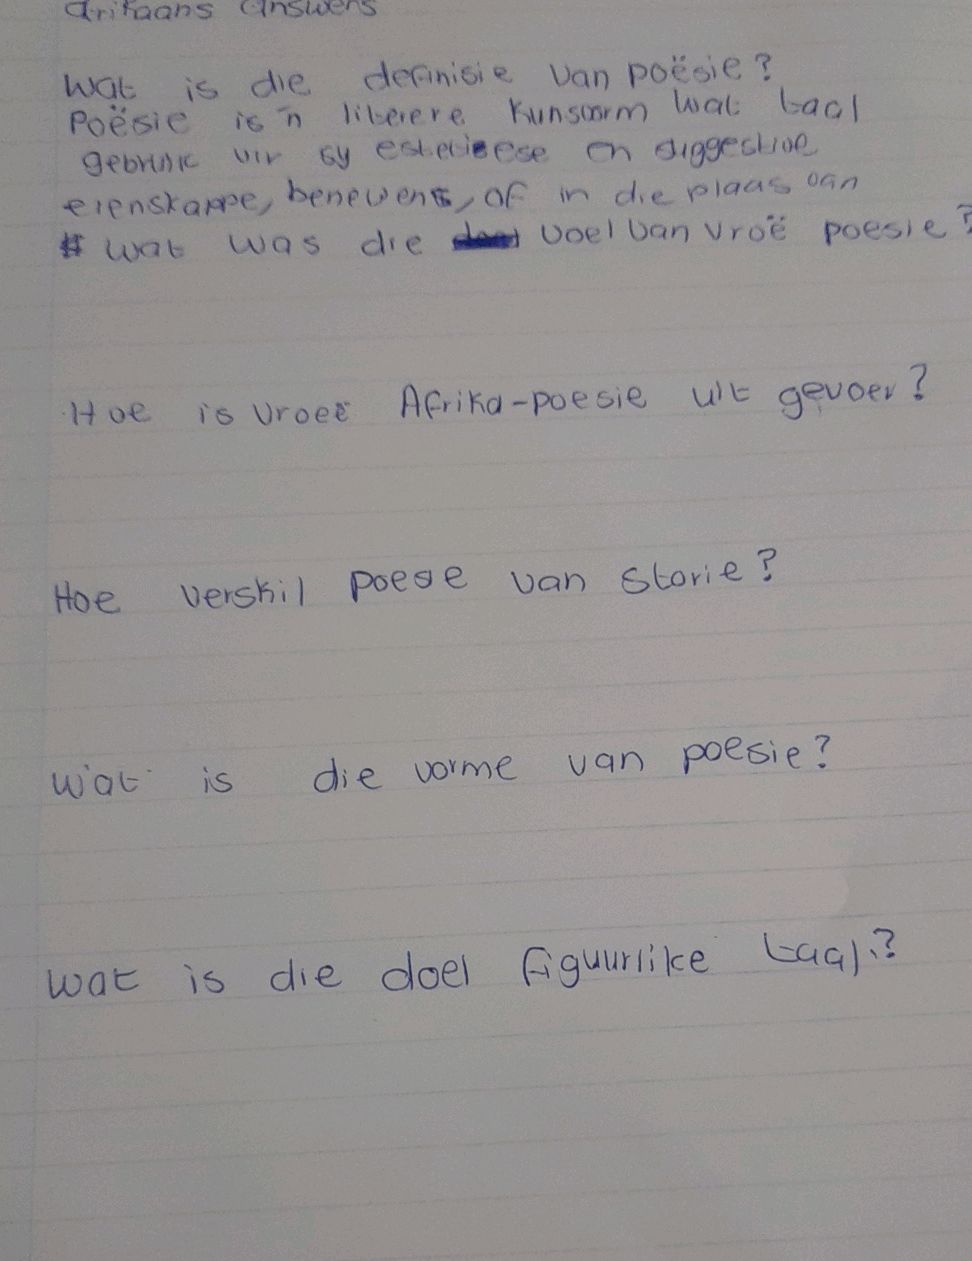 Arifaans Answers
Wat is die definisie van poësie?
Poësie is 'n literere Kunsvorm wat taal
gebruik vir sy estetiese en suggestive
eienskappe, benewens, of in die plaas van
Wat was die doel van vroë poesie?
Hoe is vroeë Afrika-poesie uit gevoer?
Hoe verskil poesie van storie?
Wat is die vorme van poesie?
Wat is die doel figuurlike taal?